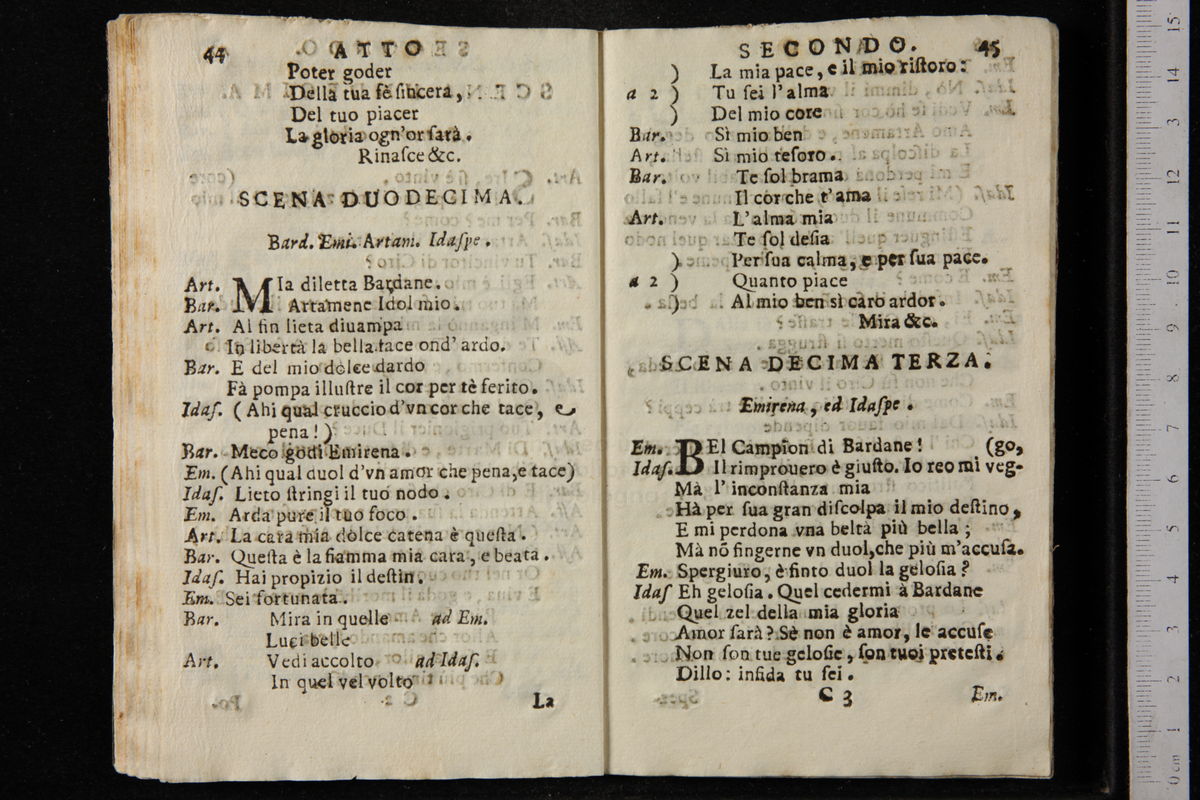 44 ATTO
Poter goder
Della tua fè sincera,
Del tuo piacer
La gloria ogn'or sarà.
Rinasce &c.
SCENA DUODECIMA.
Bard. Emi. Artam. Idaspe.
Art. MIa diletta Bardane.
Bar. Artamene Idol mio.
Art. Al fin lieta diuampa
In libertà la bella face ond' ardo.
Bar. E del mio dolce dardo
Fà pompa illustre il cor per tè ferito.
Idas. (Ahi qual cruccio d'vn cor che tace, e
pena!)
Bar. Meco godi Emirena.
Em. (Ahi qual duol d'vn amor che pena, e tace)
Idas. Lieto stringi il tuo nodo.
Em. Arda pure il tuo foco.
Art. La cara mia dolce catena è questa.
Bar. Questa è la fiamma mia cara, e beata.
Idas. Hai propizio il destin.
Em. Sei fortunata.
Bar. Mira in quelle ad Em.
Luci belle
Art. Vedi accolto ad Idas.
In quel vel volto
La
SECONDO. 45
) La mia pace, e il mio ristoro:
a 2 ) Tu sei l'alma
) Del mio core
Bar. Sì mio ben
Art. Sì mio tesoro.
Bar. Te sol brama
Il cor che t'ama
Art. L'alma mia
Te sol desia
) Per sua calma, e per sua pace.
a 2 ) Quanto piace
) Al mio ben sì caro ardor.
Mira &c.
SCENA DECIMA TERZA.
Emirena, ed Idaspe.
Em. BEl Campion di Bardane! (go,
Idas. Il rimprouero è giusto. Io reo mi veg-
Mà l' inconstanza mia
Hà per sua gran discolpa il mio destino,
E mi perdona vna beltà più bella;
Mà nõ fingerne vn duol, che più m'accusa.
Em. Spergiuro, è finto duol la gelosia?
Idas Eh gelosia. Quel cedermi à Bardane
Quel zel della mia gloria
Amor sarà? Sè non è amor, le accuse
Non son tue gelosie, son tuoi pretesti.
Dillo: infida tu sei.
C 3 Em.